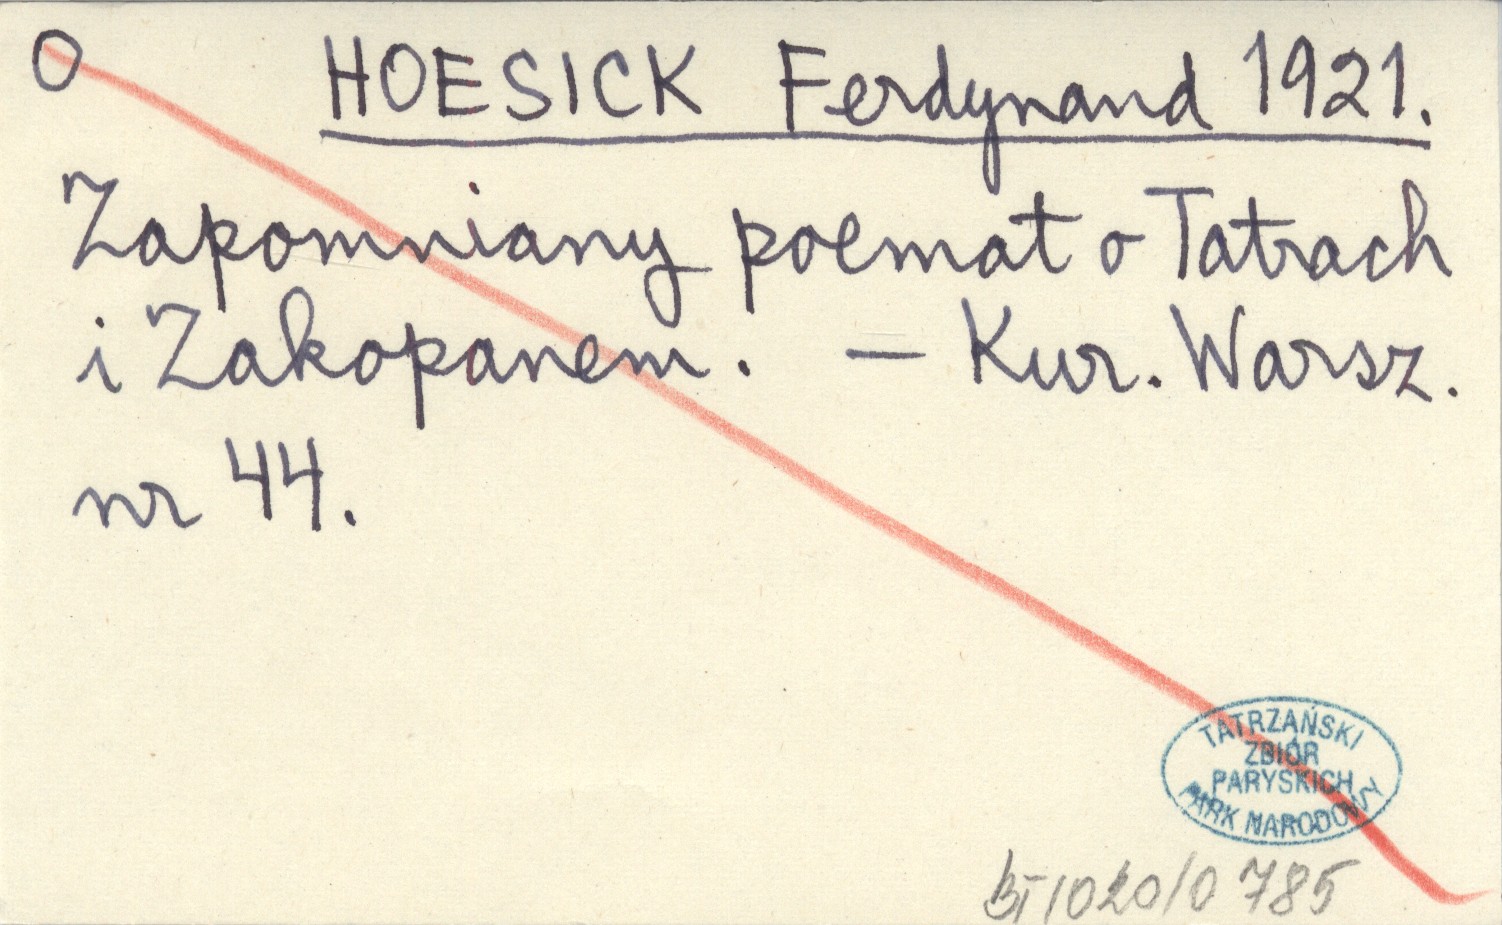 O HOESICK Ferdynand 1921.
Zapomniany poemat o Tatrach
i Zakopanem. — Kur. Warsz.
nr 44.
TATRZAŃSKI
ZBIÓR
PARYSKICH
PARK NARODOWY
BT/020/0 785